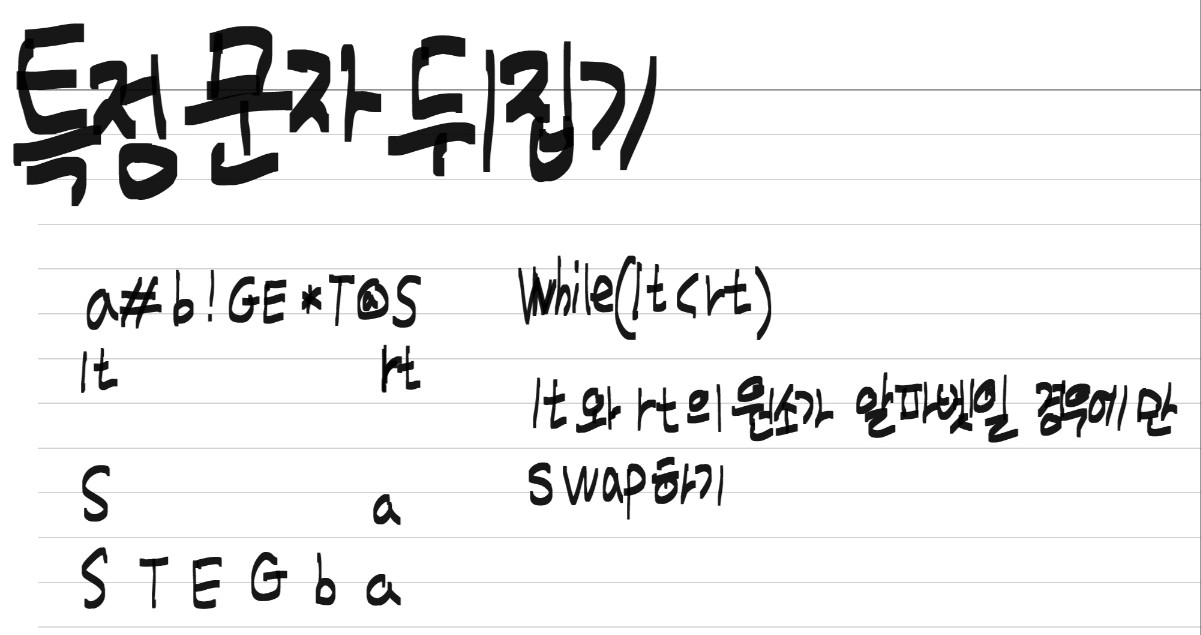 특정 문자 뒤집기
a#b!GE*T@S
lt rt
S a
S T E G b a
While(lt<rt)
lt와 rt의 원소가 알파벳일 경우에만
swap하기